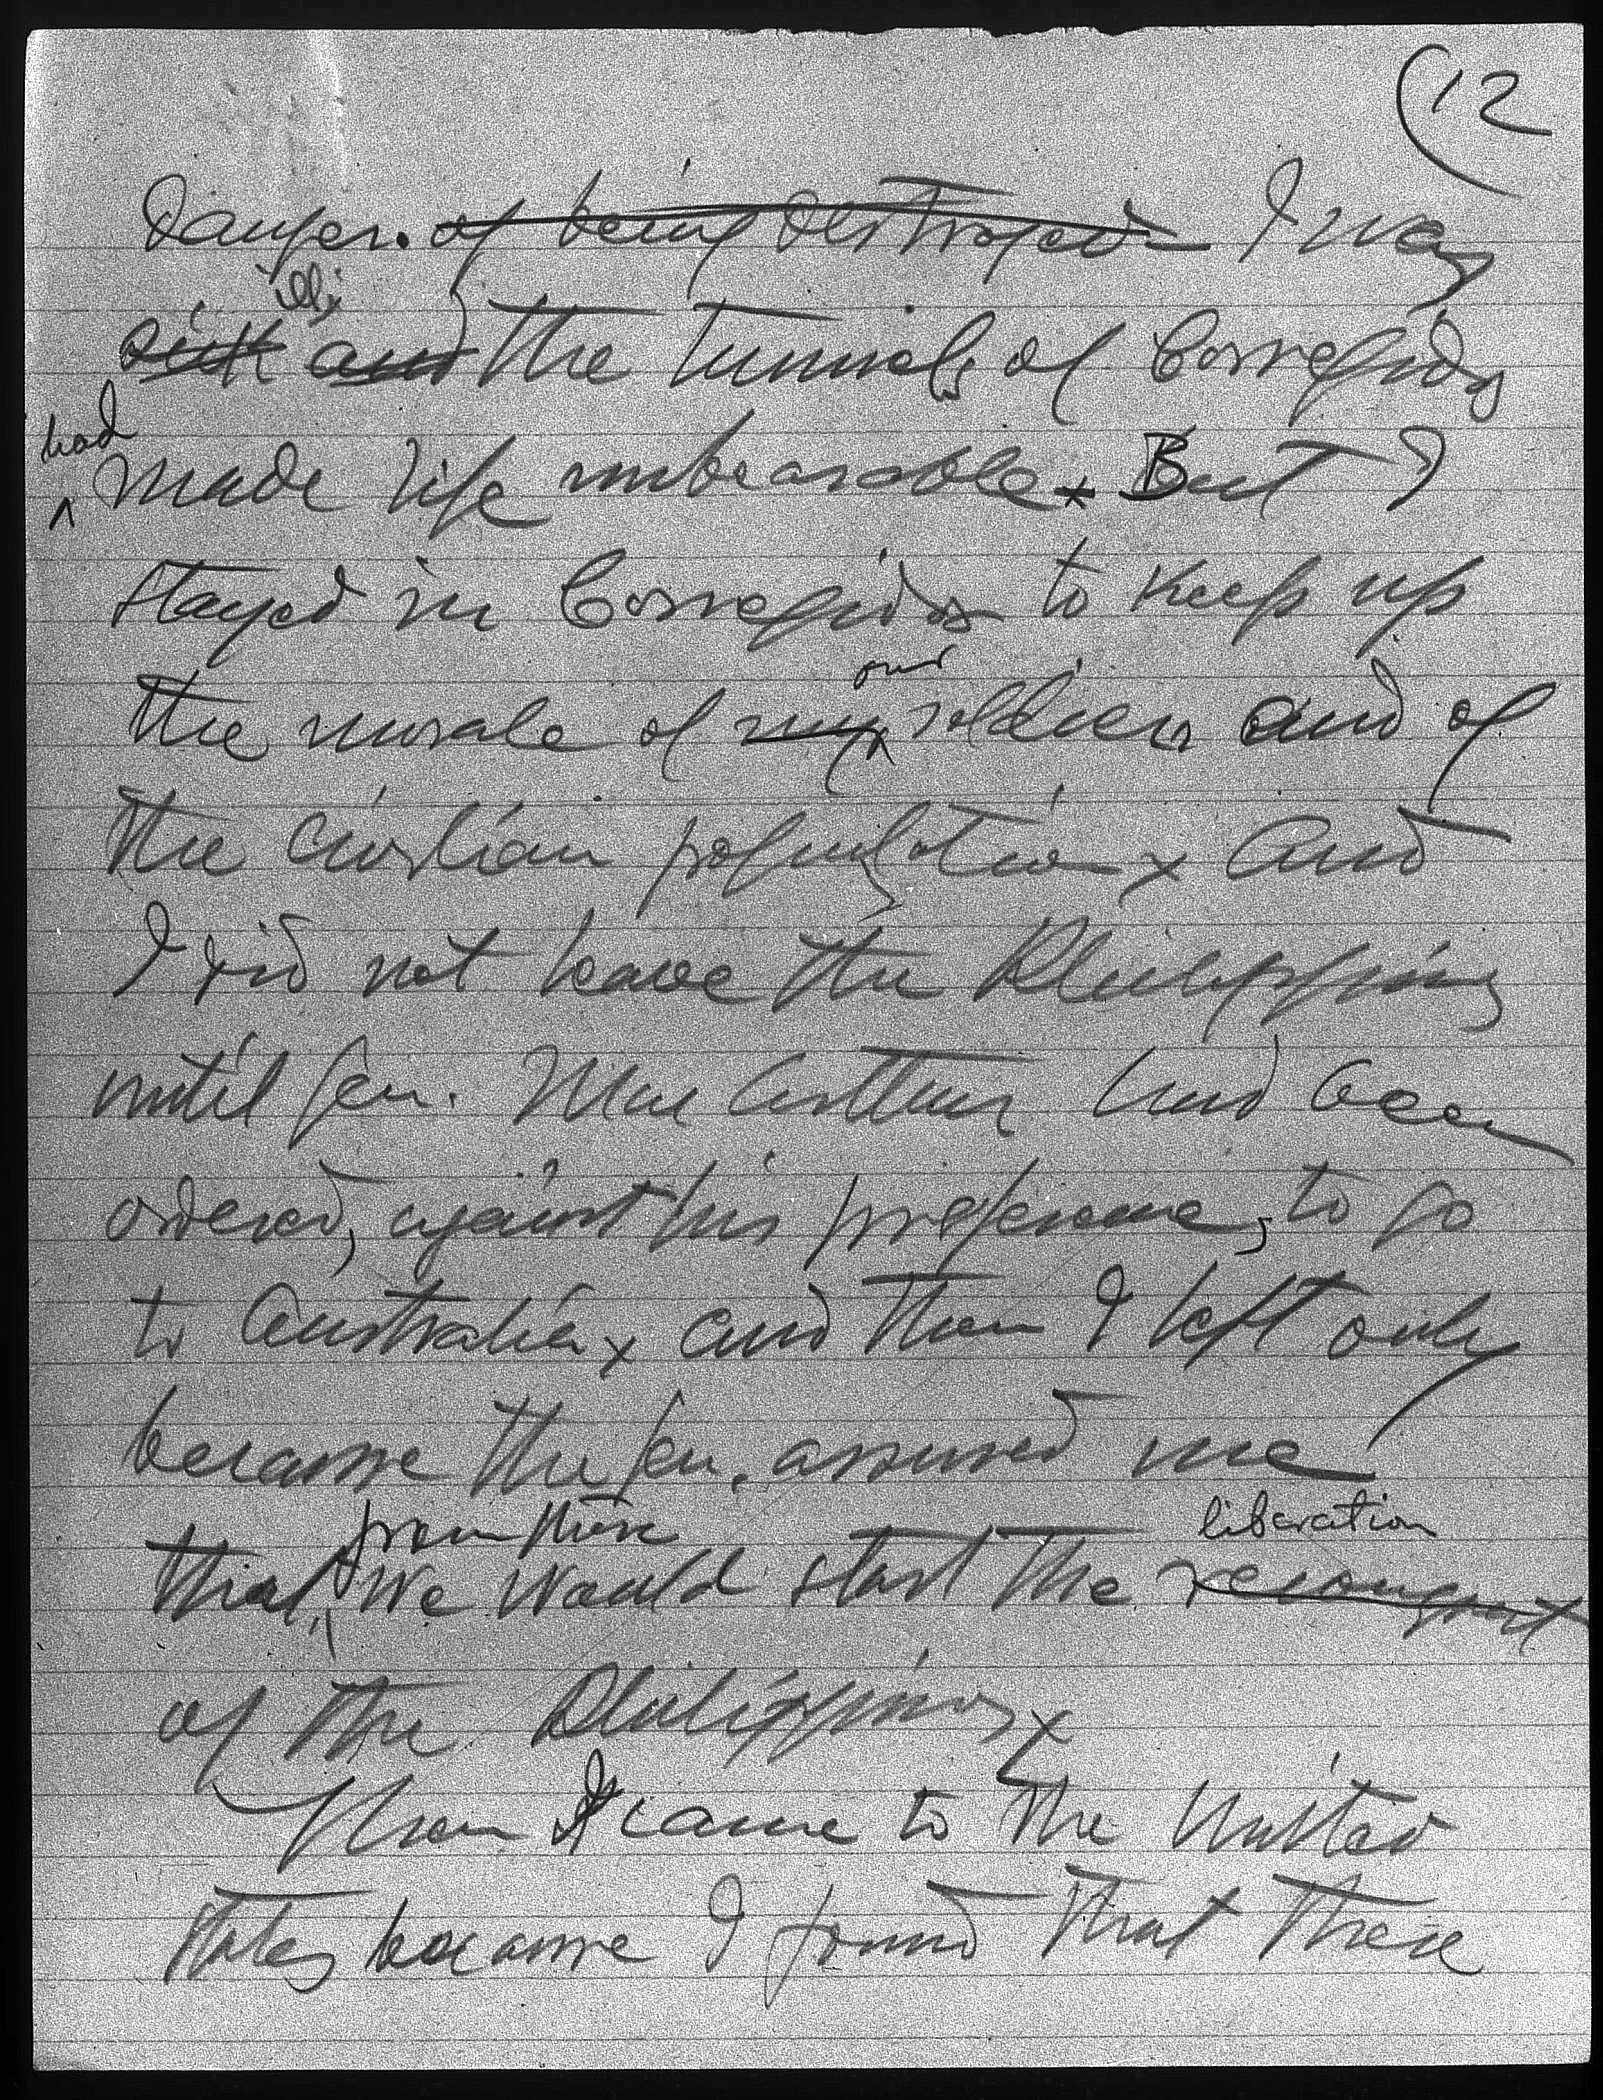 (12
danger. of being destroyed I was
sick and ill; the tunnels of Corregidor
had made life unbearable x But I
stayed in Corregidor to keep up
the morale of my our soldiers and of
the civilian population x And
I did not leave the Philippines
until Gen. MacArthur had been
ordered, against his preference, to go
to Australia x and then I left only
because the Gen. assured me
that, from there we would start the reconquest liberation
of the Philippines x
Then I came to the United
States because I found that there